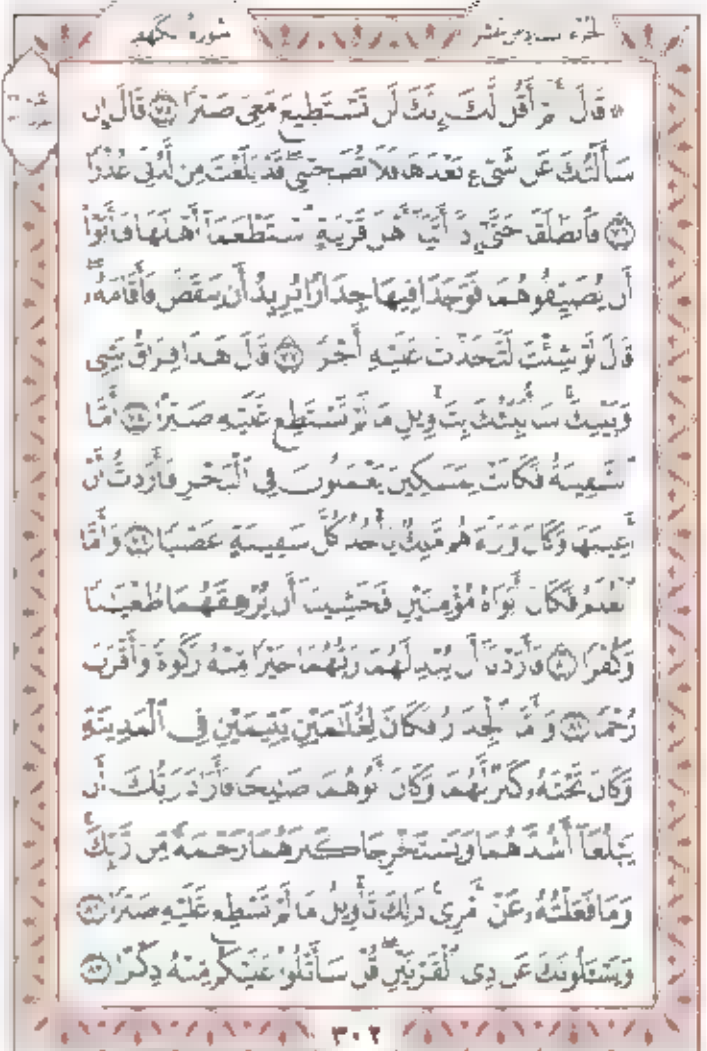 الجزء السادس عشر سورة الكهف
۞ قَالَ أَلَمْ أَقُل لَّكَ إِنَّكَ لَن تَسْتَطِيعَ مَعِىَ صَبْرًا ۝٧٥ قَالَ إِن
سَأَلْتُكَ عَن شَىْءٍۭ بَعْدَهَا فَلَا تُصَٰحِبْنِى ۖ قَدْ بَلَغْتَ مِن لَّدُنِّى عُذْرًا
۝٧٦ فَٱنطَلَقَا حَتَّىٰٓ إِذَآ أَتَيَآ أَهْلَ قَرْيَةٍ ٱسْتَطْعَمَآ أَهْلَهَا فَأَبَوْا۟
أَن يُضَيِّفُوهُمَا فَوَجَدَا فِيهَا جِدَارًا يُرِيدُ أَن يَنقَضَّ فَأَقَامَهُۥ ۖ
قَالَ لَوْ شِئْتَ لَتَّخَذْتَ عَلَيْهِ أَجْرًا ۝٧٧ قَالَ هَٰذَا فِرَاقُ بَيْنِى
وَبَيْنِكَ ۚ سَأُنَبِّئُكَ بِتَأْوِيلِ مَا لَمْ تَسْتَطِع عَّلَيْهِ صَبْرًا ۝٧٨ أَمَّا
ٱلسَّفِينَةُ فَكَانَتْ لِمَسَٰكِينَ يَعْمَلُونَ فِى ٱلْبَحْرِ فَأَرَدتُّ أَنْ
أَعِيبَهَا وَكَانَ وَرَآءَهُم مَّلِكٌ يَأْخُذُ كُلَّ سَفِينَةٍ غَصْبًا ۝٧٩ وَأَمَّا
ٱلْغُلَٰمُ فَكَانَ أَبَوَاهُ مُؤْمِنَيْنِ فَخَشِينَآ أَن يُرْهِقَهُمَا طُغْيَٰنًا
وَكُفْرًا ۝٨٠ فَأَرَدْنَآ أَن يُبْدِلَهُمَا رَبُّهُمَا خَيْرًا مِّنْهُ زَكَوٰةً وَأَقْرَبَ
رُحْمًا ۝٨١ وَأَمَّا ٱلْجِدَارُ فَكَانَ لِغُلَٰمَيْنِ يَتِيمَيْنِ فِى ٱلْمَدِينَةِ
وَكَانَ تَحْتَهُۥ كَنزٌ لَّهُمَا وَكَانَ أَبُوهُمَا صَٰلِحًا فَأَرَادَ رَبُّكَ أَن
يَبْلُغَآ أَشُدَّهُمَا وَيَسْتَخْرِجَا كَنزَهُمَا رَحْمَةً مِّن رَّبِّكَ ۚ
وَمَا فَعَلْتُهُۥ عَنْ أَمْرِى ۚ ذَٰلِكَ تَأْوِيلُ مَا لَمْ تَسْطِع عَّلَيْهِ صَبْرًا ۝٨٢
وَيَسْـَٔلُونَكَ عَن ذِى ٱلْقَرْنَيْنِ ۖ قُلْ سَأَتْلُوا۟ عَلَيْكُم مِّنْهُ ذِكْرًا ۝٨٣
٣٠٢